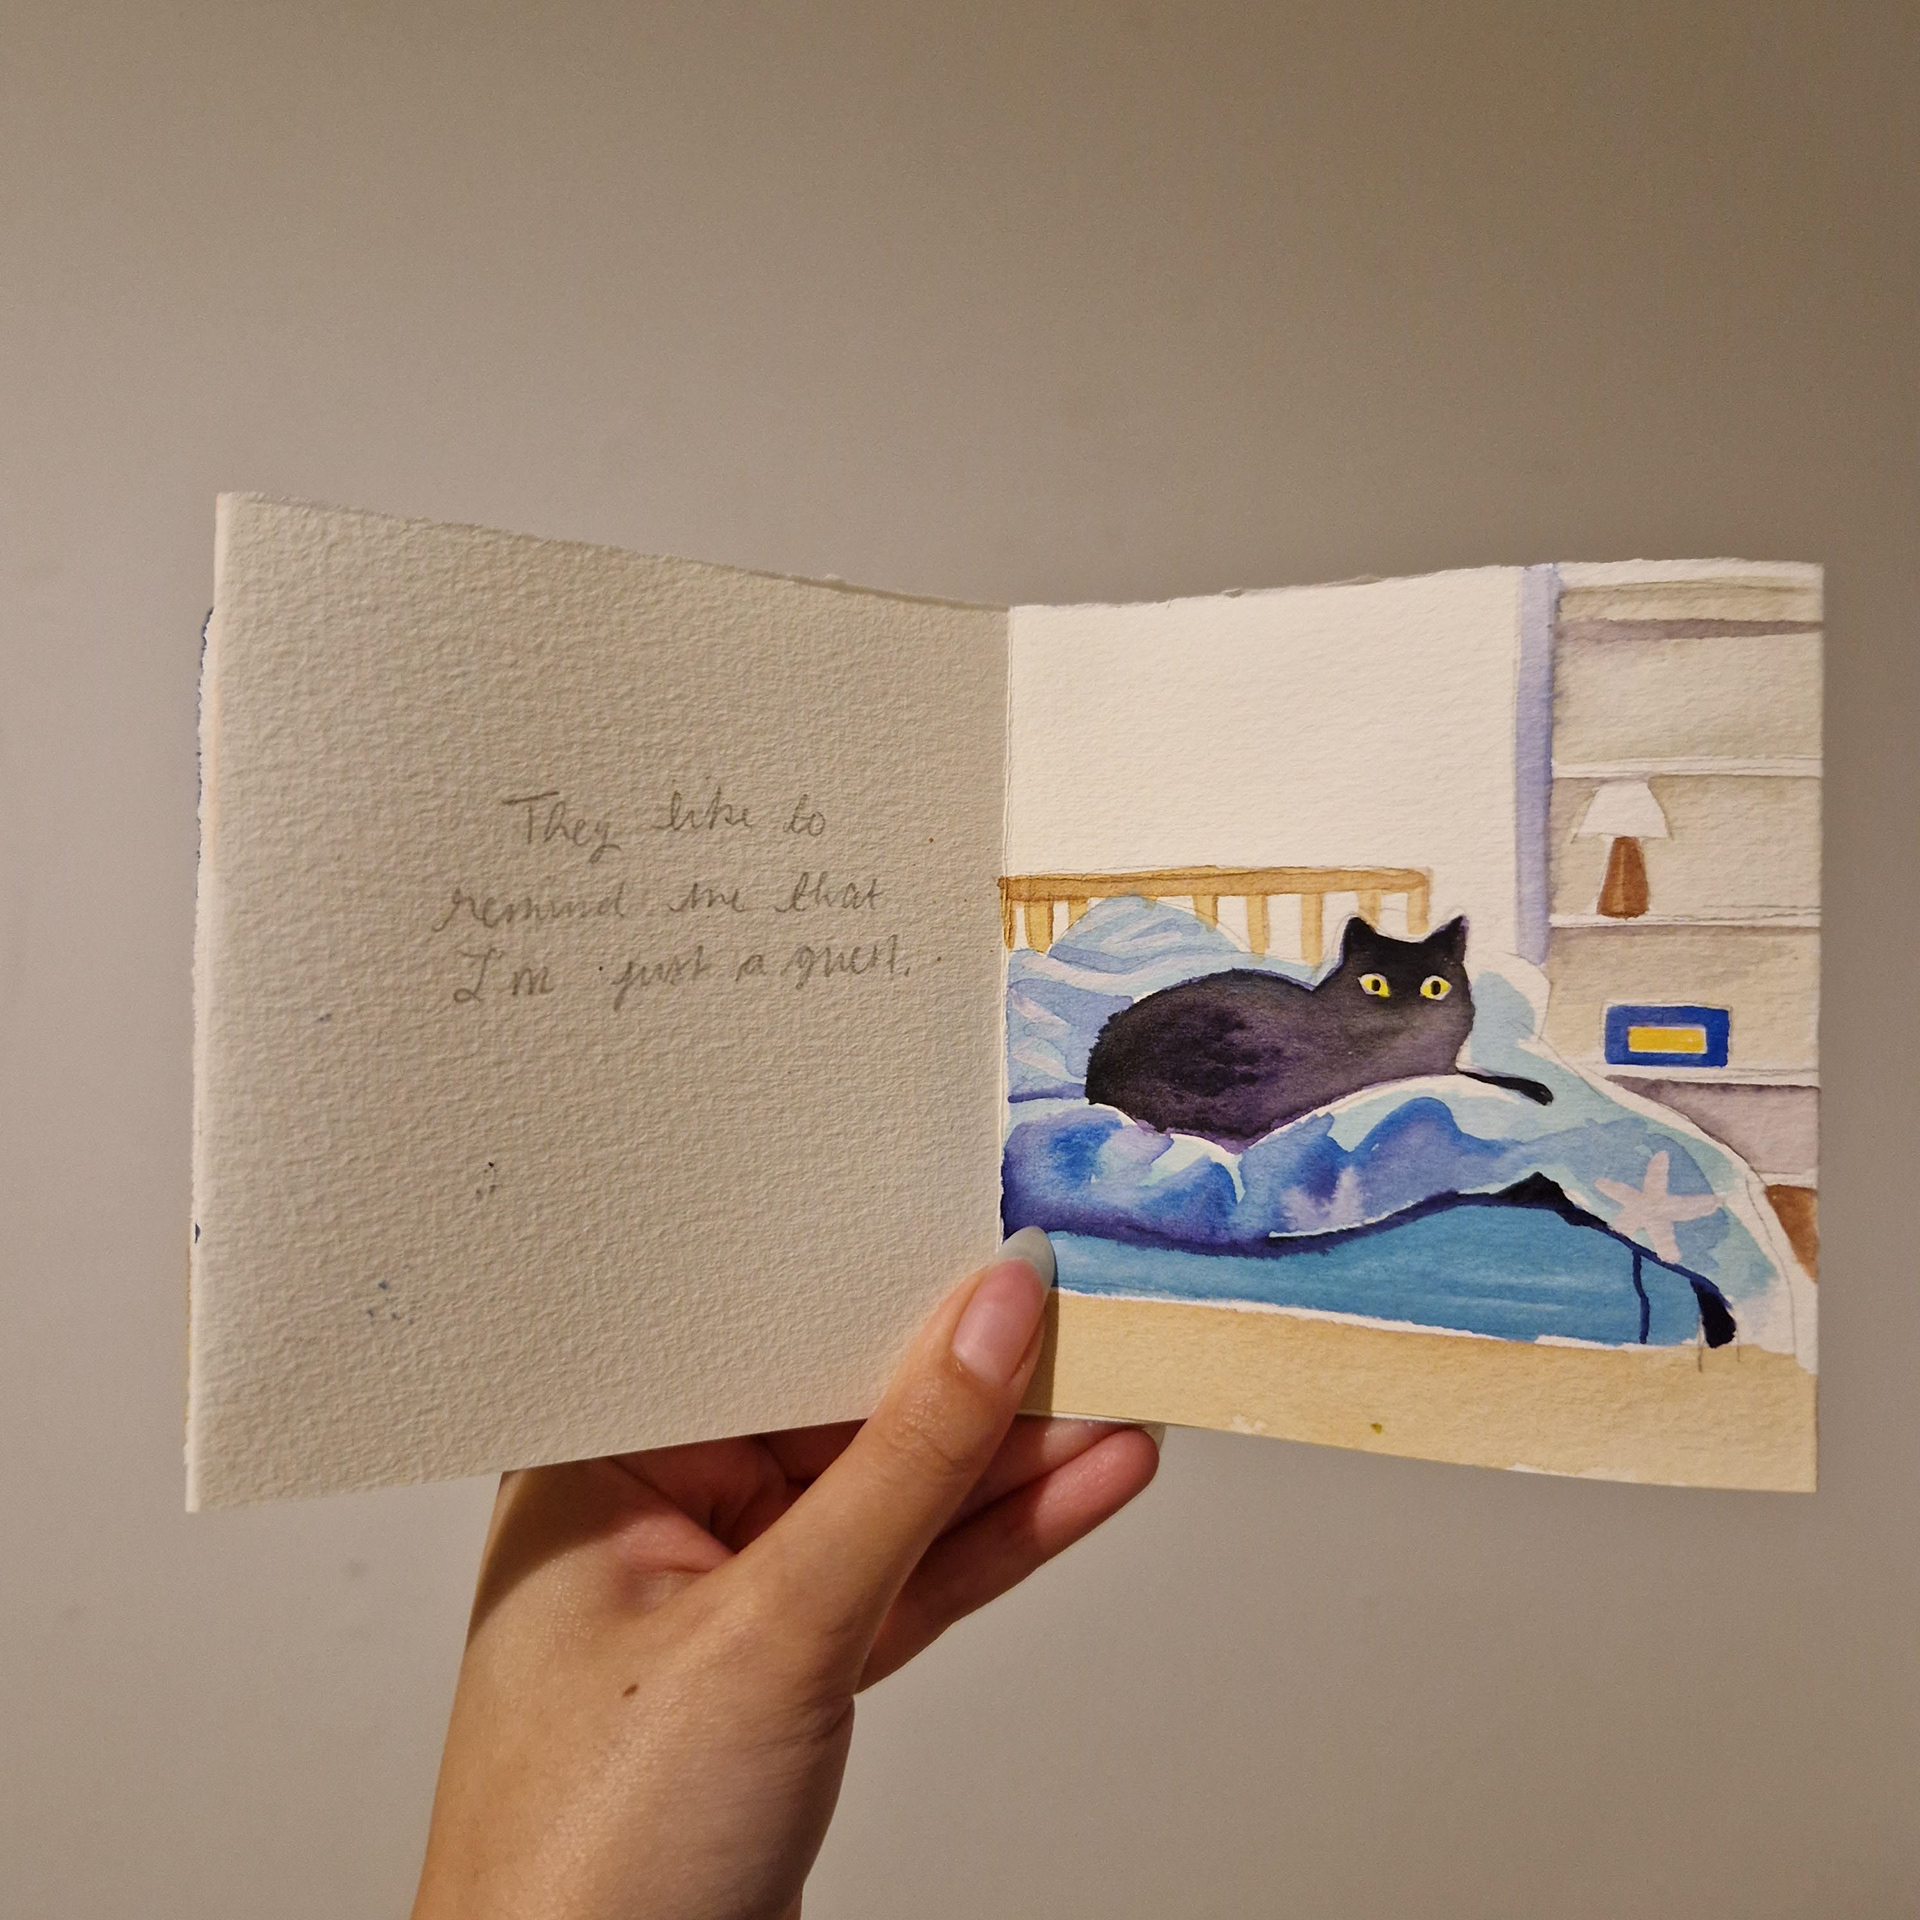 They like to
remind me that
I'm just a guest.